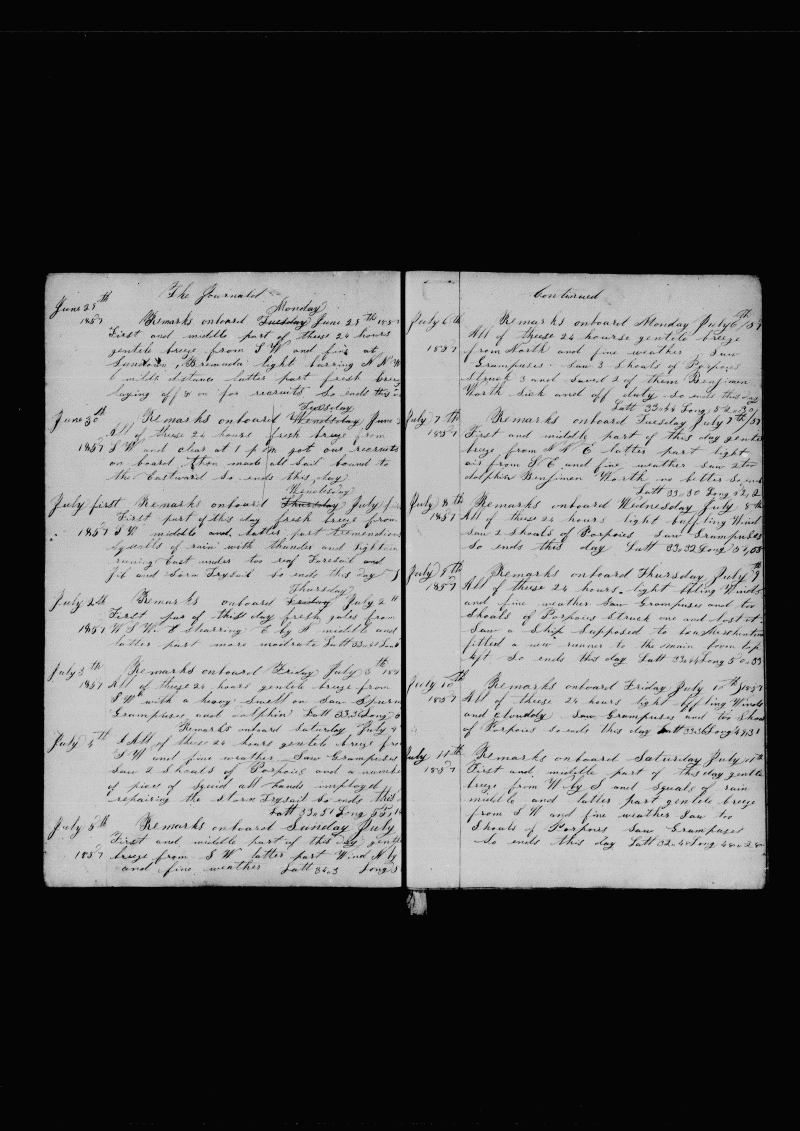 The Journal of
June 29th Monday
1857 Remarks onboard Tuesday June 29th 1857
First and middle part of theese 24 hours
gentele breeze from SW and fine at
Sundown Bermuda light barring NNW
6 mild distance latter part fresh breez
laying off & on for recruits So ends this
Tuesday
June 30th Remarks onboard Wensday June
All of theese 24 hours fresh breze from
1857 SW and clear at 1 pm got our recruits
on board then made all Sail bound to
the Eastward So ends this day
Wendesday
July first Remarks onboard Thursday July
First part of this day fresh breze from
1857 SW middle and latter part tremendious
Squalls of rain with thunder and lightnin
runing East under too reef Foresail and
Jib and Torn Trysail So ends this day
Thursday
July 2th Remarks onboard Friday July 2
First par of this day fresh gales from
1857 WSW Stearring E by N middle and
latter part more moderate Latt 33
July 3th Remarks onboard Friday July 3th 1857
1857 All of theese 24 hours gentele breeze from
SW with a heavy Swell on Saw Sperm
Grampuses and dolphin Latt 33.36 Long
Remarks onboard Saturday July 4
July 4th All of these 24 hours gentele breeze fro
SW and fine weather Saw Grampuses
Saw 2 Shoals of Porpoies and a numbe
of piece of Squid all hands imployed
repairing the Storn Trysail So ends this
Latt 33.51 Long 55
July 5th Remarks onboard Sunday July
First and middle part of this day gentle
1857 breeze from SW latter part Wind N by
and fine weather Latt 34.3 Long
Continued
July 6th Remarks onboard Monday July 6th/57
All of theese 24 hourse gentele breeze
1857 from North and fine weather Saw
Grampuses Saw 3 Shoals of Porpoies
Struck 3 and Saved 2 of them Benjimen
Worth Sick and off duty So ends this day
Latt 33.44 Long 52.30
July 7th Remarks onboard Tuesday July 7th/57
1857 First and middle part of this day gentle
breeze from NNE latter part light
air from SE and fine weather Saw
dolphin Benjimen Worth no better So ends
Latt 33.30 Long 52
July 8th Remarks onboard Wednesday July 8th
1857 All of theese 24 hours light baffling Wind
Saw 2 Shoals of Porpoies Saw Grampuses
So ends this day Latt 33.32 Long
July 9th Remarks onboard Thursday July 9th
1857 All of theese 24 hours light Winds
and fine weather Saw Grampuses and too
Shoals of Porpoies Struck one and lost it
Saw a Ship Supposed to be a Merchantman
fitted a new runner to the main boom top
lift So ends this day Latt 33.44 Long 50.33
July 10th Remarks onboard Friday July 10th/1857
1857 All of theese 24 hours light bffling Winds
and cloudely Saw Grampuses and too Shoa
of Porpoies So ends this day Latt 33.36 Long 49.31
July 11th Remarks onboard Saturday July 11th
1857 First and middle part of this day gentle
breeze from W by S and Squals of rain
middle and latter part gentele breeze
from SW and fine weather Saw too
Shoals of Porpoies Saw Grampuses
So ends this day Latt 32.48 Long 48.28